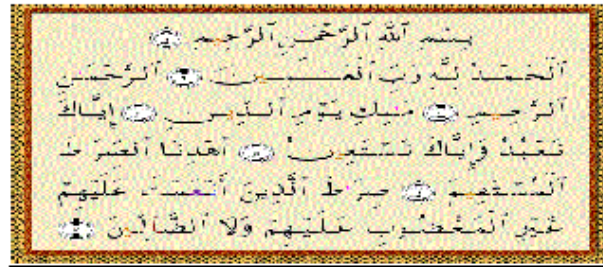 بِسْمِ ٱللَّهِ ٱلرَّحْمَٰنِ ٱلرَّحِيمِ ١
ٱلْحَمْدُ لِلَّهِ رَبِّ ٱلْعَٰلَمِينَ ٢ ٱلرَّحْمَٰنِ
ٱلرَّحِيمِ ٣ مَٰلِكِ يَوْمِ ٱلدِّينِ ٤ إِيَّاكَ
نَعْبُدُ وَإِيَّاكَ نَسْتَعِينُ ٥ ٱهْدِنَا ٱلصِّرَٰطَ
ٱلْمُسْتَقِيمَ ٦ صِرَٰطَ ٱلَّذِينَ أَنْعَمْتَ عَلَيْهِمْ
غَيْرِ ٱلْمَغْضُوبِ عَلَيْهِمْ وَلَا ٱلضَّآلِّينَ ٧